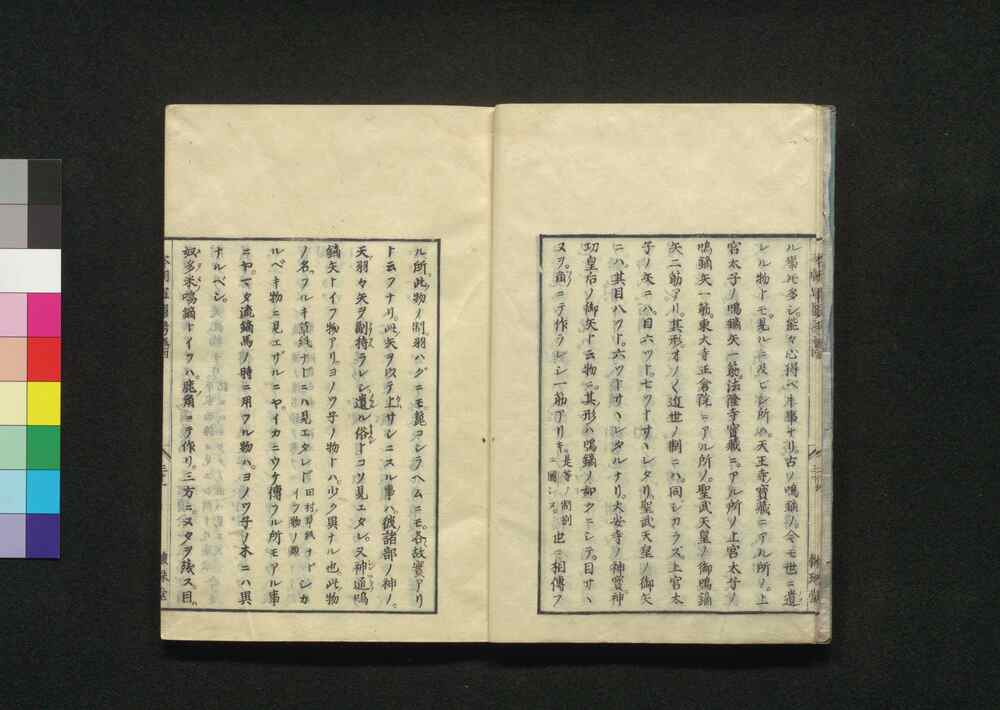 ル事死多シ。能々心得ベキ事ナリ。古ソ鳴鏑ノ。今モ世ニ遺
レル物トモ。見ルニ及ビシ所ハ。天王寺ノ寶藏ニアル所ノ。上
宮太子ノ鳴鏑矢一筋。法隆寺寶藏ニ。アル所ノ上宮太子ノ
鳴鏑矢一筋。東大寺正倉院ニアル所ノ。聖武天皇ノ御鳴鏑
矢二筋アリ。其形オノ〱近世ノ制ニハ。同シカラズ上宮太
子ノ矢ニハ。目六ツト七ツトサヽレタリ。聖武天皇ノ御矢
ニハ。其目八ツト。六ツトサヽレタルナリ。大安寺ノ神寶神
功皇后ノ御矢ト云物ニ。其形ハ鳴鏑ノ如クニシテ。目サヽ
ヌヲ。角ニテ作ラレシ一筋アリキ。是等ノ制別ニ圖シヌ。世ニ相傳フ
ル所。此物ノ制。羽ハグニモ。箆コシラヘムニモ。各故實アリ
ト云フナリ。此矢ヲ以テ上サシニスル事ハ。彼諸部ノ神ノ。
天羽々矢ヲ副持ラレシ遺ル俗トコソ見エタレ。又神通鳴
鏑矢トイフ物アリ。ヨノツ子ノ物トハ。少ク異ナル也。此物
ノ名。フルキ草紙ナトニハ見エタレド 田村草紙ナドシカイフ物ノ類
ルベキ物ニ見エザルニヤ。イカニウケ傳フル所モアル事
ニヤ。マタ流鏑馬ノ時ニ用フル物ハ。ヨノツ子ノ木ニハ異
ナルベシ。
奴多米鳴鏑トイツハ。鹿角ニテ作リ。三方ニヌタヲ殘ス。目